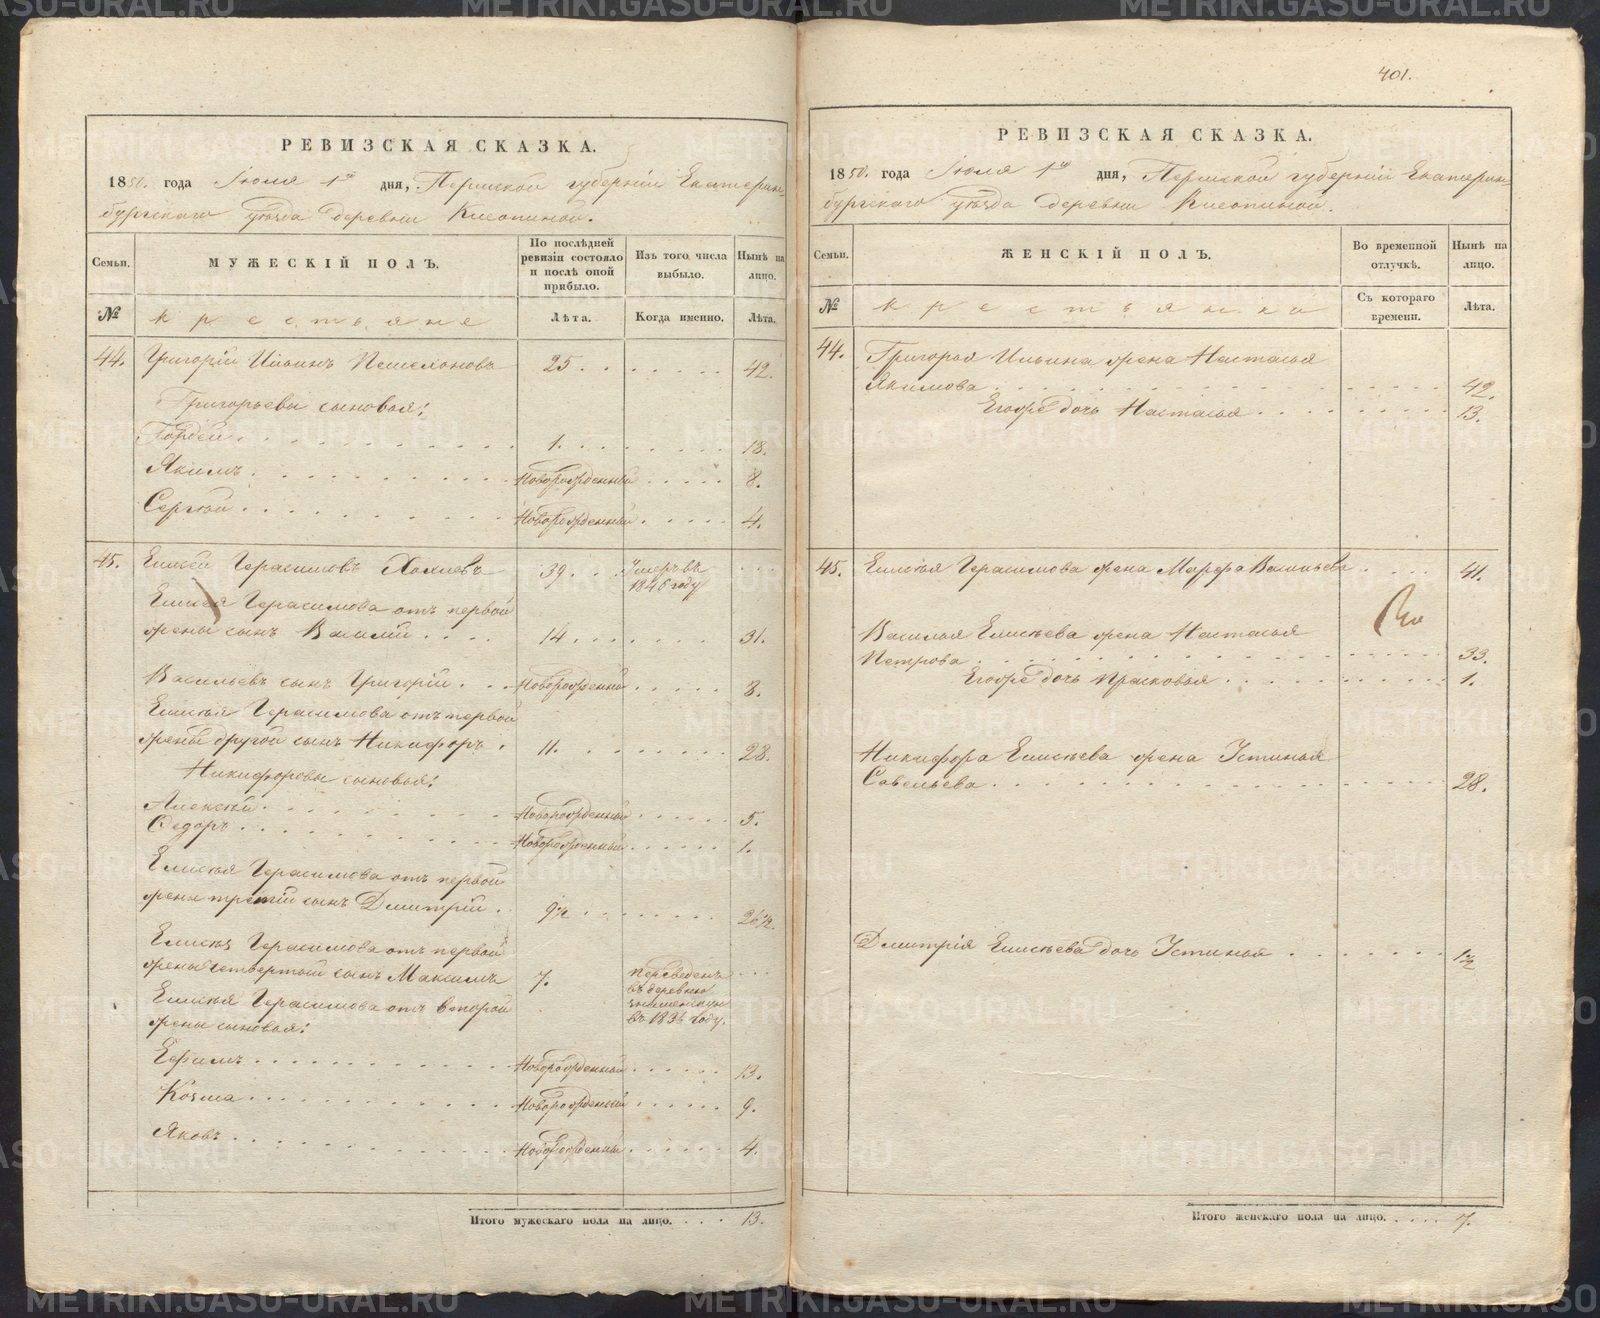 401.
РЕВИЗСКАЯ СКАЗКА.
1850. года Июля 1го дня, Пермской губернии Екатерин-
бургскаго уѣзда деревни
Семьи.
МУЖЕСКІЙ ПОЛЪ.
По послѣдней ревизіи состояло и послѣ оной прибыло.
Изъ того числа выбыло.
Нынѣ на лицо.
№
крестьяне
Лѣта.
Когда именно.
Лѣта.
44. Григорій Ильинъ 25 42.
Григорьевы сыновья:
Гордей 1. 18.
Якимъ Новорожденный 8.
Сергѣй Новорожденный 4.
45. Елисей Герасимовъ Хохлевъ 39 Умеръ въ 1846 году
Елисея Герасимова отъ первой
жены сынъ Василій 14 31.
Васильевъ сынъ Григорій Новорожденный 8.
Елисѣя Герасимова отъ первой
жены другой сынъ Никифоръ 11. 28.
Никифоровы сыновья:
Алексѣй Новорожденный 5.
Федоръ Новорожденный 1.
Елисѣя Герасимова отъ первой
жены третій сынъ Дмитрій 9½ 26½.
Елисѣя Герасимова отъ первой
жены четвертый сынъ Максимъ 7. Переведенъ
въ деревню
въ 1834 году.
Елисѣя Герасимова отъ второй
жены сыновья:
Ефимъ Новорожденный 13.
Козма Новорожденный 9.
Яковъ Новорожденный 4.
Итого мужескаго пола на лицо. 13.
РЕВИЗСКАЯ СКАЗКА.
1850. года Июля 1го дня, Пермской губерніи Екатерин-
бургскаго уѣзда деревни
Семьи.
ЖЕНСКІЙ ПОЛЪ.
Во временной отлучкѣ.
Нынѣ на лицо.
№
крестьянки
Съ котораго времени.
Лѣта.
44. Григорья Ильина жена Настасья
Якимова 42.
Егоже дочь Настасья 13.
45. Елисѣя Герасимова жена Марфа Васильева 41.
Василья Елисѣева жена Настасья
Петрова 33.
Егоже дочь Прасковья 1.
Никифора Елисѣева жена Устинья
Савельева 28.
Дмитрія Елисѣева дочь Устинья 1½
Итого женскаго пола на лицо. 7.
METRIKI.GASO-URAL.RU